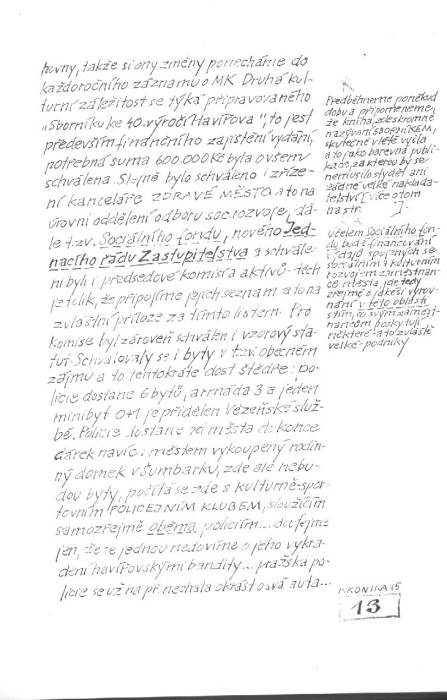 hovny, takže si ony změny ponecháme do
každoročního záznamu o MK. Druhá kul-
turní záležitost se týká připravovaného
„Sborníku ke 40. výročí Havířova", to jest
především finančního zajištění vydání,
potřebná suma 600.000 Kč byla ovšem
schválena. Stejně bylo schváleno i zříze-
ní kanceláře ZDRAVÉ MĚSTO a to na
úrovni oddělení odboru soc. rozvoje, dá-
le t.zv. Sociálního fondu, nového Jed-
nacího řádu Zastupitelstva a schvále-
ni byli i předsedové komisí a aktivů - těch
je tolik, že připojíme jejich seznam a to na
zvláštní příloze za tímto listem. Pro
komise byl zároveň schválen i vzorový sta-
tut. Schvalovaly se i byty v t.zv. obecném
zájmu a to tentokráte dost štědře: po-
licie dostane 6 bytů, armáda 3 a jeden
minibyt 0+1 je přidělen Vězeňské služ-
bě. Policie dostane od města dokonce
dárek navíc: městem vykoupený rodin-
ný domek v Šumbarku, zde ale nebu-
dou byty, počítá se zde s kulturně-spor-
tovním POLICEJNÍM KLUBEM, sloužícím
samozřejmě oběma policiím... doufejme
jen, že se jednou nedovíme o jeho vykra-
dení havířovskými bandity... pražská po-
licie se už na př. nechala okrást o svá auta...
Předběhneme poněkud
dobu a připomeneme,
že kniha, zde skromně
nazývaná SBORNÍKEM,
skutečně vletě vyšla
a to jako barevná publi-
kace, za kterou by se
nemusilo stydět ani
žádné velké naklada-
telství, více o tom
na str. ]
Účelem Sociálního fon-
du bude financování
výdajů spojených se
sociálním a kulturním
rozvojem zaměstnan-
ců města, jde tedy
zřejmě o jakési vyrov-
nání v této oblasti
s tím, co svým zaměst-
nancům poskytují
některé - a to zvláště
velké - podniky
KRONIKA 95
13